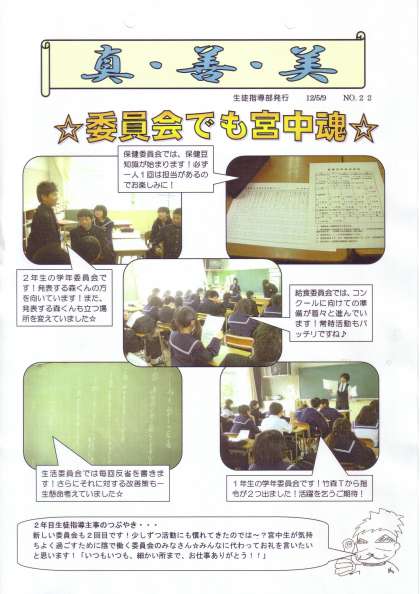 真・善・美
生徒指導部発行 12/5/9 NO.22
☆委員会でも宮中魂☆
保健委員会では、保健豆
知識が始まります!必ず
一人1回は担当があるの
でお楽しみに!
2年生の学年委員会で
す!発表する森くんの方
を向いています!また、
発表する森くんも立つ場
所を変えていました☆
給食委員会では、コン
クールに向けての準
備が着々と進んでい
ます!常時活動もバ
ッチリですね♪
生活委員会では毎回反省を書きま
す!さらにそれに対する改善策も一
生懸命考えていました☆
1年生の学年委員会です!竹森Tから指
令が2つ出ました!活躍を乞うご期待!
2年目生徒指導主事のつぶやき・・・
新しい委員会も2回目です!少しずつ活動にも慣れてきたのでは~?宮中生が気持
ちよく過ごすために陰で働く委員会のみなさん☆みんなに代わってお礼を言いたい
と思います!「いつもいつも、細かい所まで、お仕事ありがとう!!」